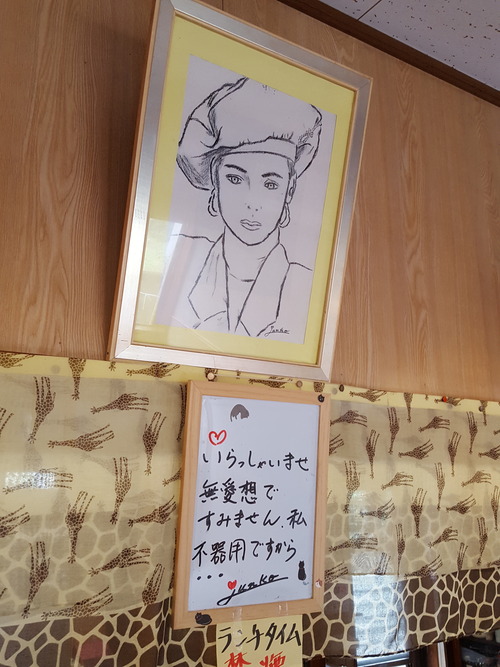 Junko
いらっしゃいませ
無愛想で
すみません、私
不器用ですから
… Junko
ランチタイム
禁煙